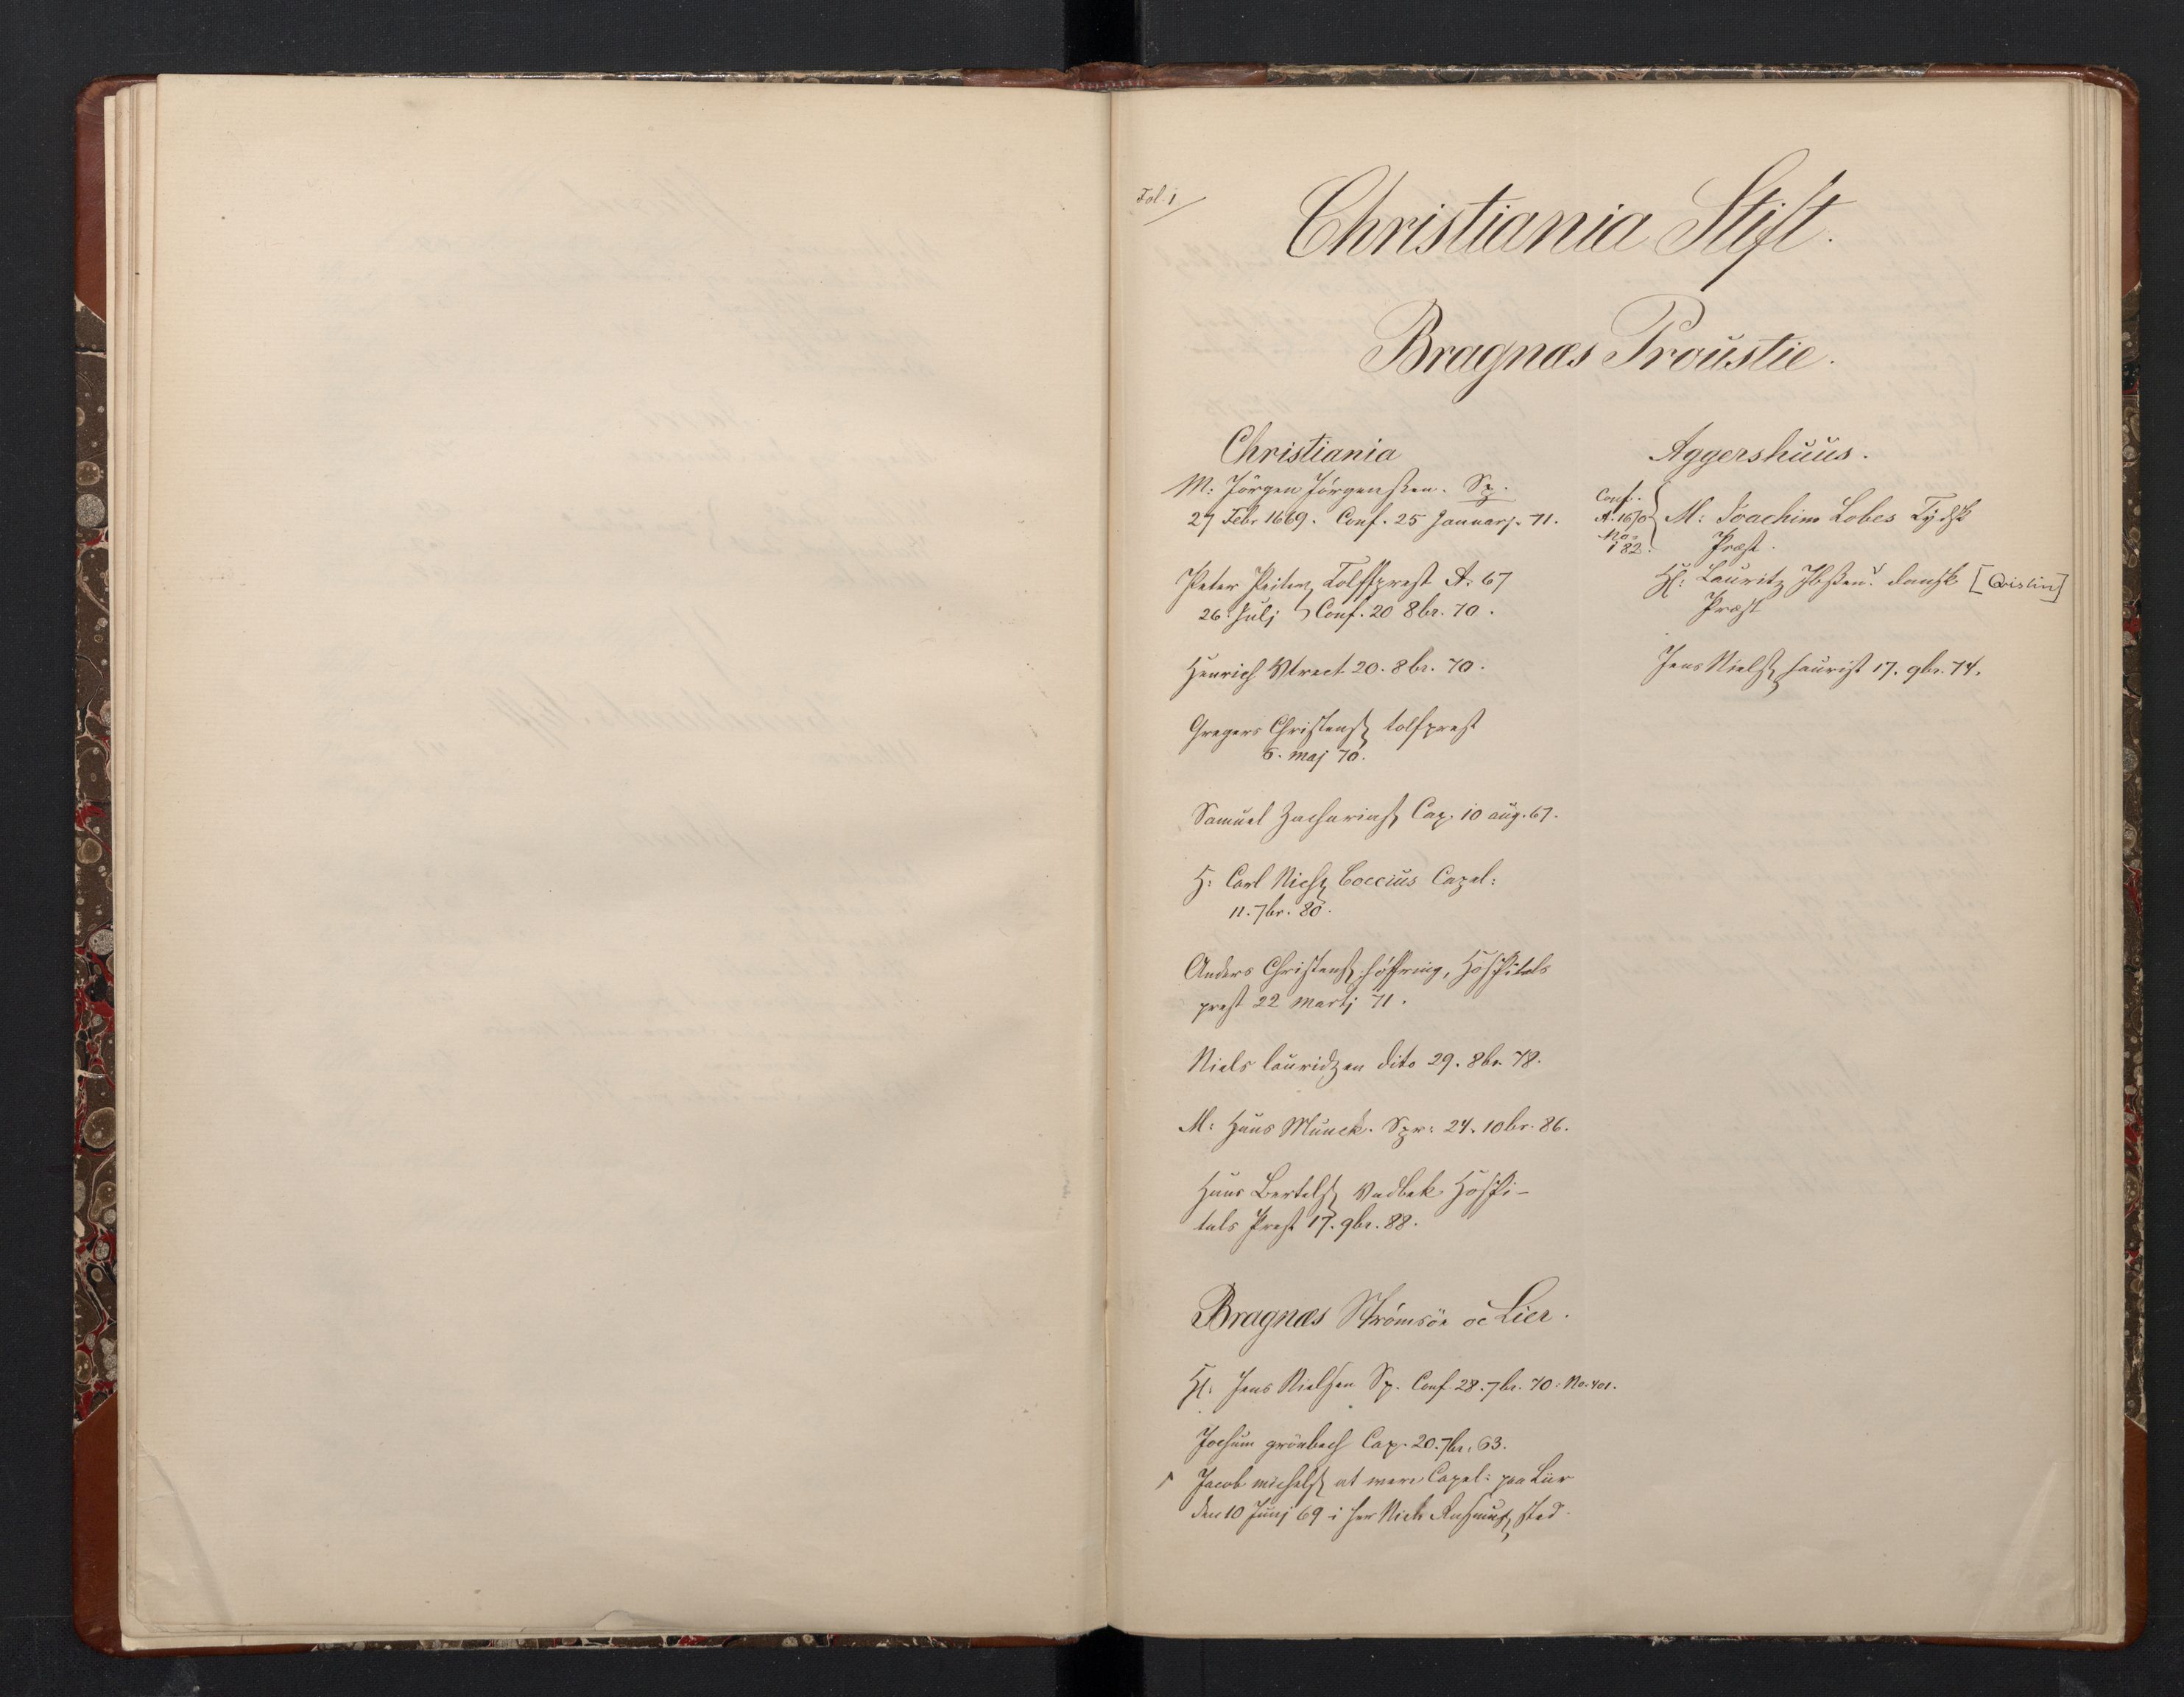 Fol. 1.
Christiania Stift.
Bragnæs Proustie.
Christiania
M: Jörgen Jörgenssen. Sp.
27 Febr 1669. Conf. 25 Januarj. 71.
Peter Tolffprest A. 67
26. Julj Conf. 20 8br. 70.
Henrich 20. 8br. 70.
Gregers Christens tolfprest
6. maj 70.
Samuel Zacharias Cap. 10 aug. 67.
H: Carl Coccius Capel:
11. 7br. 80.
Anders Christens höffring, Hospitals
prest 22 martj 71.
Niels lauridzen dito 29. 8br. 78.
M: Hans Munck. Spr: 24. 10br. 86.
Hans Bertels Vadbek Hospi-
tals Prest 17. 9br. 88.
Bragnæs Strömsöe oc Lier.
H: Jens Nielsen Sp. Conf 28. 7br. 70. No. 401.
Jochum grönbech Cap. 20. 7br. 63.
Jacob michels at were Capel: paa Liir
den 10 Junj 69 i her Niels Rasmus sted.
Aggershuus.
Conf.
A. 1670
No.
182.
M: Joachim Lobes Tydsk
Præst.
H: Lauritz Ibssen dansk [Qvislin]
Præst
Jens Niels laurist 17. 9br. 74.